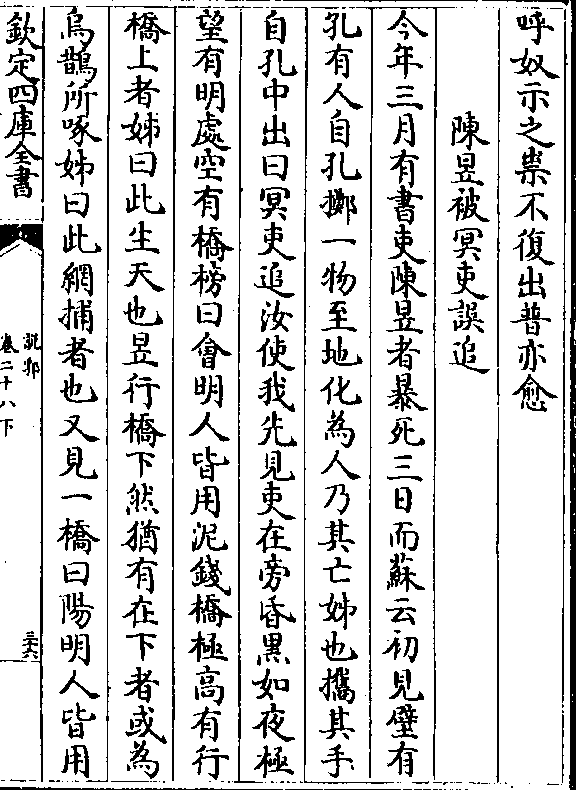 呼奴示之祟不復出普亦愈
陳昱被冥吏誤追
今年三月有書吏陳昱者暴死三日而蘇云初見壁有
孔有人自孔擲一物至地化為人乃其亡姊也攜其手
自孔中出曰冥吏追汝使我先見吏在旁昏黒如夜極
望有明處空有橋榜曰會明人皆用泥錢橋極高有行
橋上者姊曰此生天也昱行橋下然猶有在下者或為
烏鵲所啄姊曰此網捕者也又見一橋曰陽明人皆用
欽定四庫全書
說郛
卷二十八下
三六